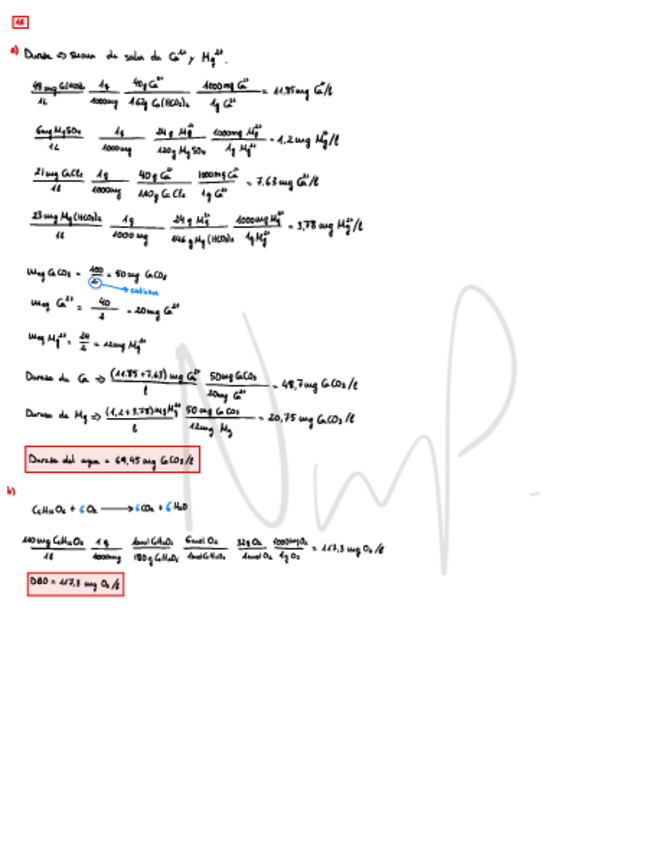 16
a) Dureza ⇒ suma de sales de Ca²⁺ y Mg²⁺.
48 mg Ca(HCO3)2 / 1L · 1g / 1000mg · 40g Ca²⁺ / 162g Ca(HCO3)2 · 1000mg Ca²⁺ / 1g Ca²⁺ = 11,85 mg Ca²⁺/l
6mg MgSO4 / 1L · 1g / 1000mg · 24g Mg²⁺ / 120g MgSO4 · 1000mg Mg²⁺ / 1g Mg²⁺ = 1,2 mg Mg²⁺/l
21mg CaCl2 / 1l · 1g / 1000mg · 40g Ca²⁺ / 110g CaCl2 · 1000mg Ca²⁺ / 1g Ca²⁺ = 7,63 mg Ca²⁺/l
23mg Mg(HCO3)2 / 1l · 1g / 1000mg · 24g Mg²⁺ / 146g Mg(HCO3)2 · 1000mg Mg²⁺ / 1g Mg²⁺ = 3,78 mg Mg²⁺/l
meq CaCO3 = 100 / 2 = 50mg CaCO3
meq Ca²⁺ = 40 / 2 = 20mg Ca²⁺
meq Mg²⁺ = 24 / 2 = 12mg Mg²⁺
Dureza de Ca ⇒ (11,85+7,63) mg Ca²⁺ / l · 50mg CaCO3 / 20mg Ca²⁺ = 48,7mg CaCO3/l
Dureza de Mg ⇒ (1,2+3,78) mg Mg²⁺ / l · 50mg CaCO3 / 12mg Mg = 20,75 mg CaCO3/l
Dureza del agua = 69,45 mg CaCO3/l
b)
C6H12O6 + 6O2 → 6CO2 + 6H2O
110mg C6H12O6 / 1l · 1g / 1000mg · 1mol C6H12O6 / 180g C6H12O6 · 6mol O2 / 1mol C6H12O6 · 32g O2 / 1mol O2 · 1000mg O2 / 1g O2 = 117,3 mg O2/l
DBO = 117,3 mg O2/l